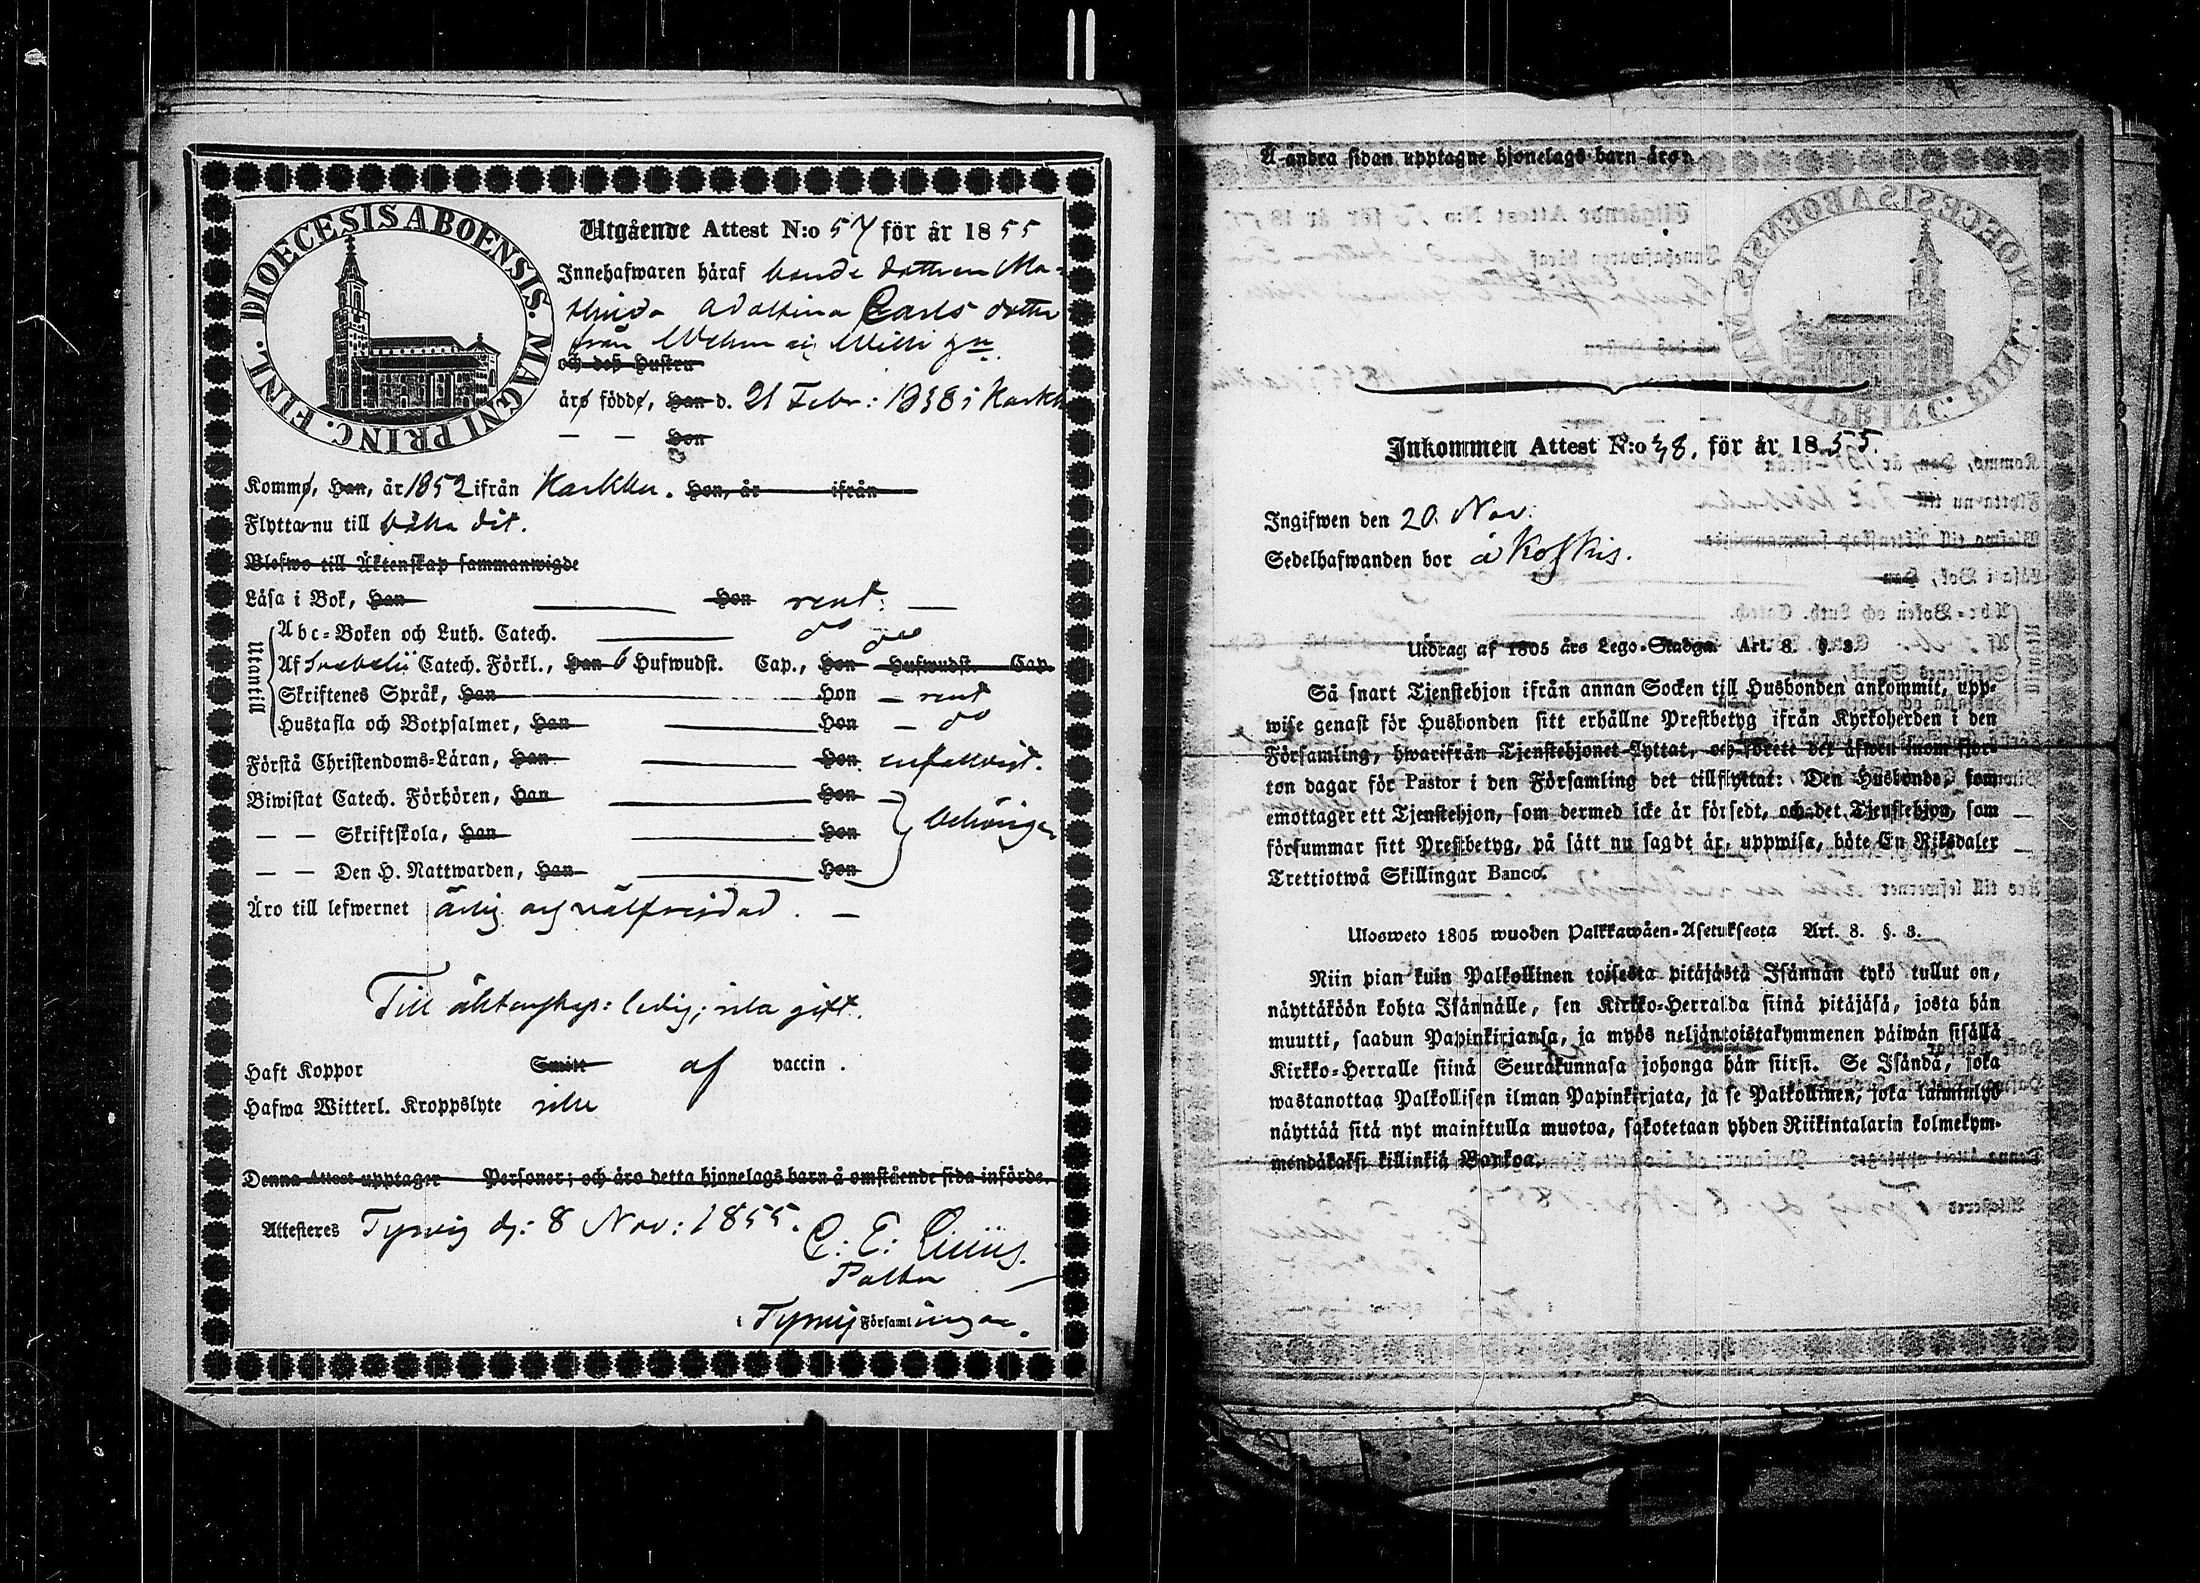 DIOECESIS ABOENSIS. MAGNI PRINC. FINL.
Utgående Attest N:o 57 för år 1855
Innehafwaren häraf bonde dottren Ma-
thilda Adolfina Carls dotter
från
och deß Hustru
äro födde, Han d. 21 Febr: 1838 i Karkku
— — Hon
Komme, Han, år 1852 ifrån Karkku. Hon, år ifrån
Flytta nu till båka dit.
Blefwo till Äktenskap sammanwigde
Läsa i Bok, Han Hon rent. —
Utantill
Abc-Boken och Luth. Catech. do
Af Svebelii Catech. Förkl., Han 6 Hufwudst. Cap., Hon Hufwudst. Cap.
Skriftenes Språk, Han Hon — rent
Hustafla och Botpsalmer, Han Hon — do
Förstå Christendoms-Läran, Han Hon enfaldigt.
Biwistat Catech. Förhören, Han Hon —
— — Skriftskola, Han Hon behörigen
— — Den H. Nattwarden, Han Hon
Äro till lefwernet ärlig och välfrejdad. —
Till äktenskap: ledig; icke gift.
Haft Koppor Smitt af vaccin.
Hafwa Witterl. Kroppslyte icke
Denna Attest upptager Personer; och äro detta hjonelags barn å omstående sida införde.
Attesteres Tyrvis d: 8 Nov: 1855. C: E: Lilius.
Pastor
i Tyrvis Församlingar.
Å andra sidan upptagne hjonelags barn äro:
Inkommen Attest N:o 38, för år 1855.
Ingifwen den 20 Nov:
Sedelhafwanden bor å Koskis.
Utdrag af 1805 års Lego-Stadga. Art. 8. §. 3.
Så snart Tjenstehjon ifrån annan Socken till Husbonden ankommit, upp-
wise genast för Husbonden sitt erhållne Prestbetyg ifrån Kyrkoherden i den
Församling, hwarifrån Tjenstehjonet flyttat, och förete det äfwen inom fjor-
ton dagar för Pastor i den Församling det tillflyttat: Den Husbonde, som
emottager ett Tjenstehjon, som dermed icke är försedt, och det Tjenstehjon, som
försummar sitt Prestbetyg, på sätt nu sagdt är, uppwisa, böte En Riksdaler
Trettiotwå Skillingar Banco.
Ulosweto 1805 wuoden Palkkawäen-Asetuksesta Art. 8. §. 3.
Niin pian kuin Palkollinen toisesta pitäjästä Isännän tykö tullut on,
näyttäköön kohta Isännälle, sen Kirkko-Herralda siinä pitäjäsä, josta hän
muutti, saadun Papinkirjansa, ja myös neljäntoistakymmenen päiwän sisällä
Kirkko-Herralle siinä Seurakunnasa johonga hän siirsi. Se Isändä, joka
wastanottaa Palkollisen ilman Papinkirjata, ja se Palkollinen, joka laiminlyö
näyttää sitä nyt mainitulla muotoa, sakotetaan yhden Riikintalarin kolmekym-
mendäkaksi killinkiä Bankoa.